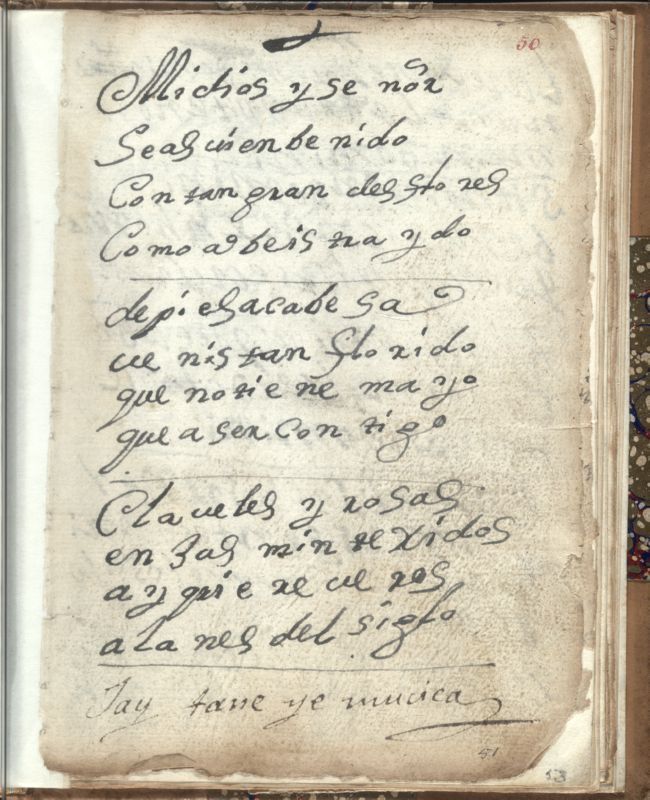 50
Midios y señor
Seas vien benido
Con tan gran des flo res
Como a beis tra y do
de pies a cabe sa
ve nis tan flo rido
que no tie ne ma yo
que a ser con tigo
Cla ve les y rosas
en jas min te xidos
a y qui e re ve ros
ala nes del siglo
51
53